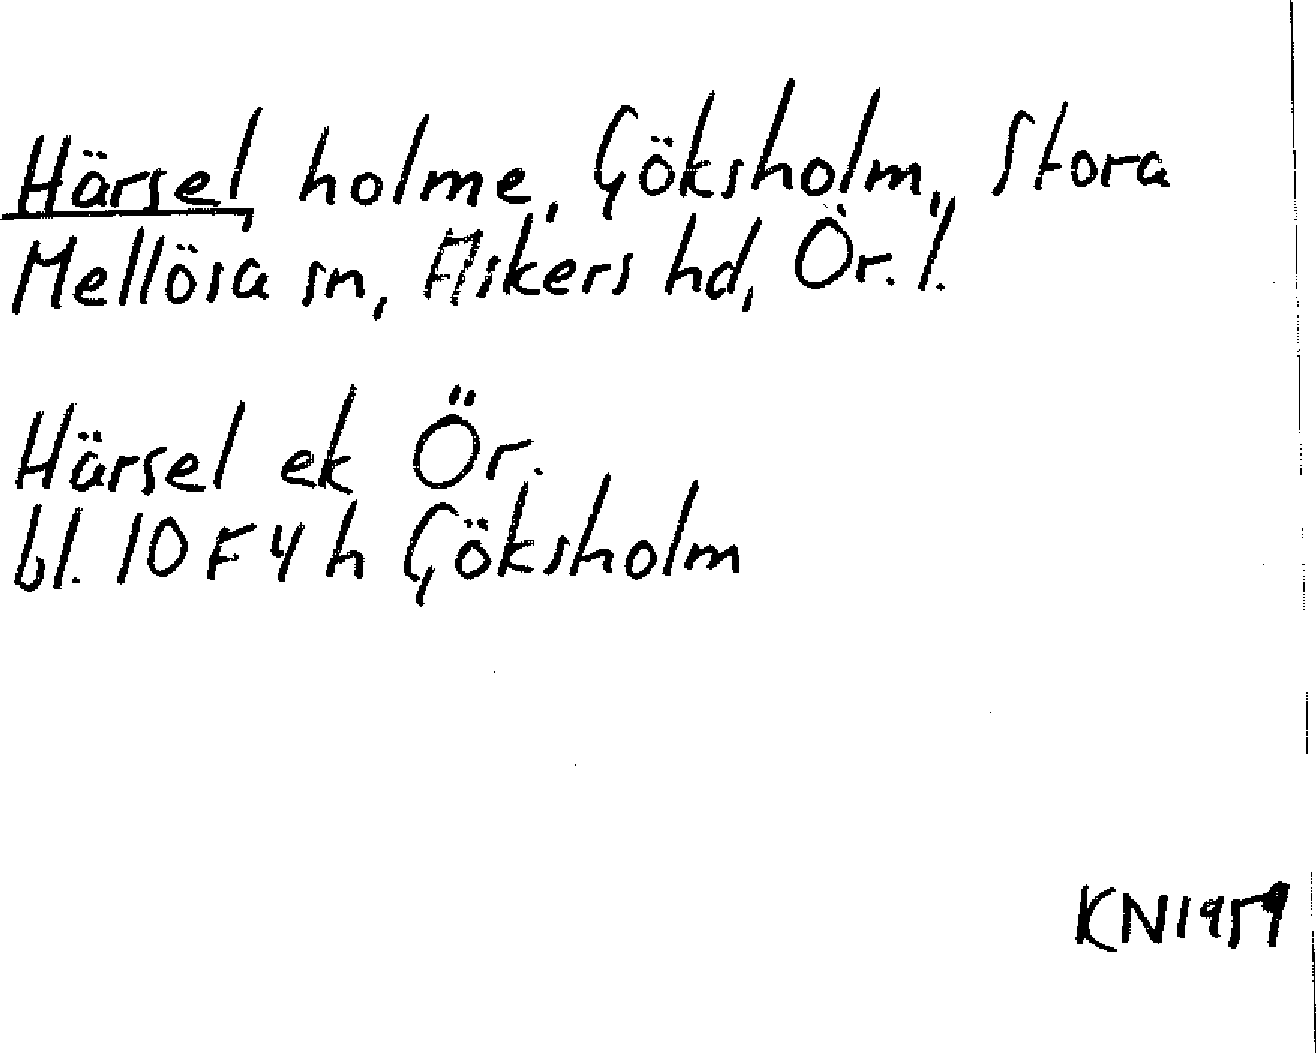 Härsel, holme, Göksholm, Stora
Mellösa sn, Askers hd, Ör. l.
Härsel ek Ör.
bl. 10 F 4 h Göksholm
KN 1959